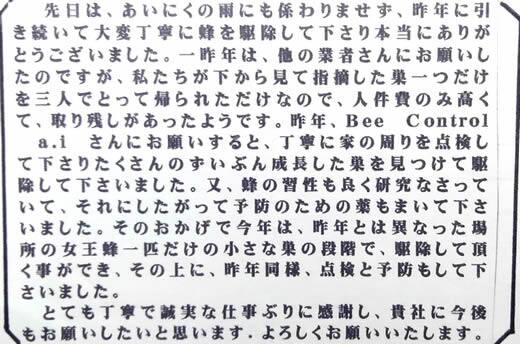 先日は、あいにくの雨にも係わりませず、昨年に引
き続いて大変丁寧に蜂を駆除して下さり本当にありが
とうございました。一昨年は、他の業者さんにお願いし
たのですが、私たちが下から見て指摘した巣一つだけ
を三人でとって帰られただけなので、人件費のみ高く
て、取り残しがあったようです。昨年、Bee Control
a.i さんにお願いすると、丁寧に家の周りを点検し
て下さりたくさんのずいぶん成長した巣を見つけて駆
除して下さいました。又、蜂の習性も良く研究なさって
いて、それにしたがって予防のための薬もまいて下さ
いました。そのおかげで今年は、昨年とは異なった場
所の女王蜂一匹だけの小さな巣の段階で、駆除して頂
く事ができ、その上に、昨年同様、点検と予防もして下
さいました。
とても丁寧で誠実な仕事ぶりに感謝し、貴社に今後
もお願いしたいと思います．よろしくお願いいたします。